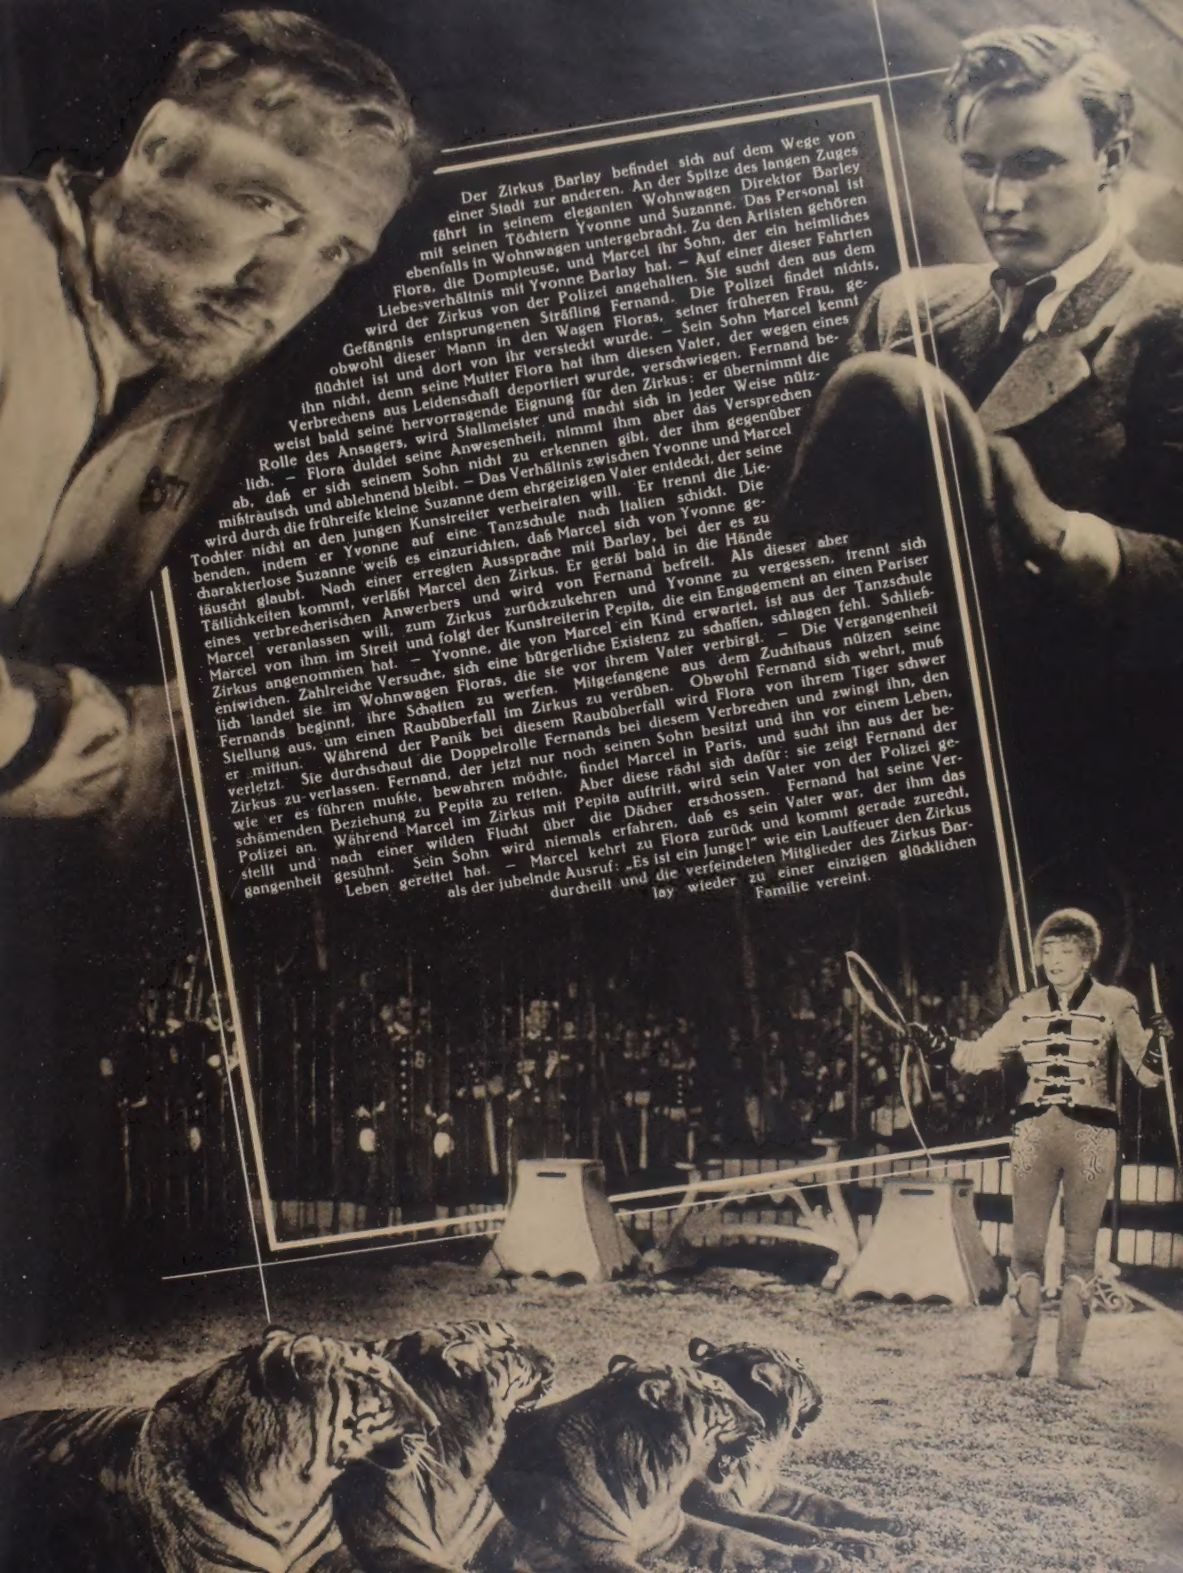 Der Zirkus Barlay befindet sich auf dem Wege von
einer Stadt zur anderen. An der Spitze des langen Zuges
fährt in seinem eleganten Wohnwagen Direktor Barley
mit seinen Töchtern Yvonne und Suzanne. Das Personal ist
ebenfalls in Wohnwagen untergebracht. Zu den Artisten gehören
Flora, die Dompteuse, und Marcel ihr Sohn, der ein heimliches
Liebesverhältnis mit Yvonne Barlay hat. – Auf einer dieser Fahrten
wird der Zirkus von der Polizei angehalten. Sie sucht den aus dem
Gefängnis entsprungenen Sträfling Fernand. Die Polizei findet nichts,
obwohl dieser Mann in den Wagen Floras, seiner früheren Frau, ge-
flüchtet ist und dort von ihr versteckt wurde. – Sein Sohn Marcel kennt
ihn nicht, denn seine Mutter Flora hat ihm diesen Vater, der wegen eines
Verbrechens aus Leidenschaft deportiert wurde, verschwiegen. Fernand be-
weist bald seine hervorragende Eignung für den Zirkus: er übernimmt die
Rolle des Ansagers, wird Stallmeister und macht sich in jeder Weise nütz-
lich. – Flora duldet seine Anwesenheit, nimmt ihm aber das Versprechen
ab, daß er sich seinem Sohn nicht zu erkennen gibt, der ihm gegenüber
mißtrauisch und ablehnend bleibt. – Das Verhältnis zwischen Yvonne und Marcel
wird durch die frühreife kleine Suzanne dem ehrgeizigen Vater entdeckt, der seine
Tochter nicht an den jungen Kunstreiter verheiraten will. Er trennt die Lie-
benden, indem er Yvonne auf eine Tanzschule nach Italien schickt. Die
charakterlose Suzanne weiß es einzurichten, daß Marcel sich von Yvonne ge-
täuscht glaubt. Nach einer erregten Aussprache mit Barlay, bei der es zu
Tätlichkeiten kommt, verläßt Marcel den Zirkus. Er gerät bald in die Hände
eines verbrecherischen Anwerbers und wird von Fernand befreit. Als dieser aber
Marcel veranlassen will, zum Zirkus zurückzukehren und Yvonne zu vergessen, trennt sich
Marcel von ihm im Streit und folgt der Kunstreiterin Pepita, die ein Engagement an einen Pariser
Zirkus angenommen hat. – Yvonne, die von Marcel ein Kind erwartet, ist aus der Tanzschule
entwichen. Zahlreiche Versuche, sich eine bürgerliche Existenz zu schaffen, schlagen fehl. Schließ-
lich landet sie im Wohnwagen Floras, die sie vor ihrem Vater verbirgt. – Die Vergangenheit
Fernands beginnt, ihre Schatten zu werfen. Mitgefangene aus dem Zuchthaus nützen seine
Stellung aus, um einen Raubüberfall im Zirkus zu verüben. Obwohl Fernand sich wehrt, muß
er mittun. Während der Panik bei diesem Raubüberfall wird Flora von ihrem Tiger schwer
verletzt. Sie durchschaut die Doppelrolle Fernands bei diesem Verbrechen und zwingt ihn, den
Zirkus zu verlassen. Fernand, der jetzt nur noch seinen Sohn besitzt und ihn vor einem Leben,
wie er es führen mußte, bewahren möchte, findet Marcel in Paris, und sucht ihn aus der be-
schämenden Beziehung zu Pepita zu retten. Aber diese rächt sich dafür: sie zeigt Fernand der
Polizei an. Während Marcel im Zirkus mit Pepita auftritt, wird sein Vater von der Polizei ge-
stellt und nach einer wilden Flucht über die Dächer erschossen. Fernand hat seine Ver-
gangenheit gesühnt. Sein Sohn wird niemals erfahren, daß es sein Vater war, der ihm das
Leben gerettet hat. – Marcel kehrt zu Flora zurück und kommt gerade zurecht,
als der jubelnde Ausruf: „Es ist ein Junge!“ wie ein Lauffeuer den Zirkus
durcheilt und die verfeindeten Mitglieder des Zirkus Bar-
lay wieder zu einer einzigen glücklichen
Familie vereint.